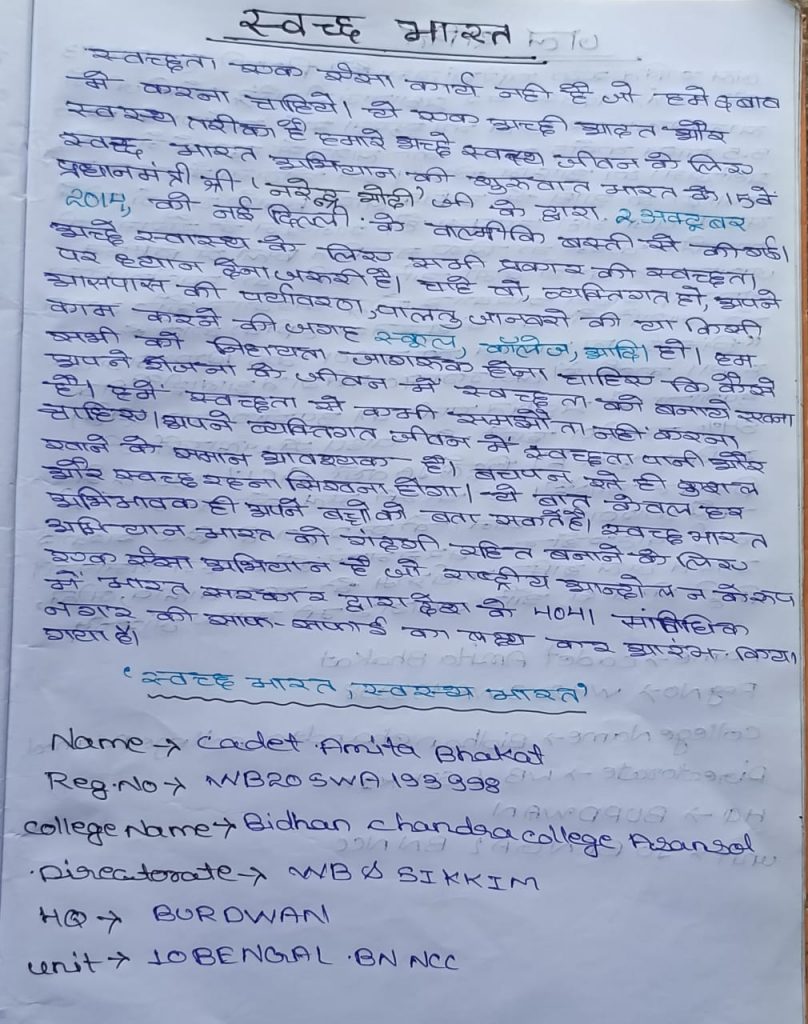 स्वच्छ भारत
स्वच्छता एक ऐसा कार्य नही है जो हमे दबाव
मे करना चाहिये। ये एक अच्छी आदत और
स्वस्थ तरीका है हमारे अच्छे स्वस्थ जीवन के लिए
स्वच्छ भारत अभियान की शुरुवात भारत के 15वें
प्रधानमंत्री श्री 'नरेन्द्र मोदी' जी के द्वारा 2 अक्टूबर
2014, को नई दिल्ली के वाल्मीकि बस्ती से की गई।
अच्छे स्वास्थ के लिए सभी प्रकार की स्वच्छता
पर ध्यान देना जरूरी है। चाहे वो, व्यक्तिगत हो, अपने
आसपास की पर्यावरण, पालतु जानवरो की या किसी
काम करने की जगह स्कूल, कॉलेज, आदि। हो। हम
सभी को निहायता जागरूक होना चाहिए कि कैसे
अपने रोजना के जीवन में स्वच्छता को बनाये रखना
है। हमें स्वच्छता से कभी समझौता नहीं करना
चाहिए। अपने व्यक्तिगत जीवन में स्वच्छता पानी और
खाने के समान आवश्यक है। बचपन से ही कुशल
और स्वच्छ रहना सिखना होगा। ये बात केवल हर
अभिभावक ही अपने बच्चो को बता सकते है। स्वच्छ भारत
अभियान भारत को गंदगी रहित बनाने के लिए
एक ऐसा अभियान है जो राष्ट्रीय आन्दोलन के रूप
में भारत सरकार द्वारा देश के 4041 सांविधिक
नगर की साफ-सफाई का लक्ष्य कर आरंभ किया
गया है।
'स्वच्छ भारत, स्वस्थ भारत'
Name → Cadet Amita Bhakat
Reg.No → WB20SWA199998
college Name → Bidhan Chandra college, Asansol
Direcatorate → WB & SIKKIM
HQ → BURDWAN
unit → 10 BENGAL BN NCC